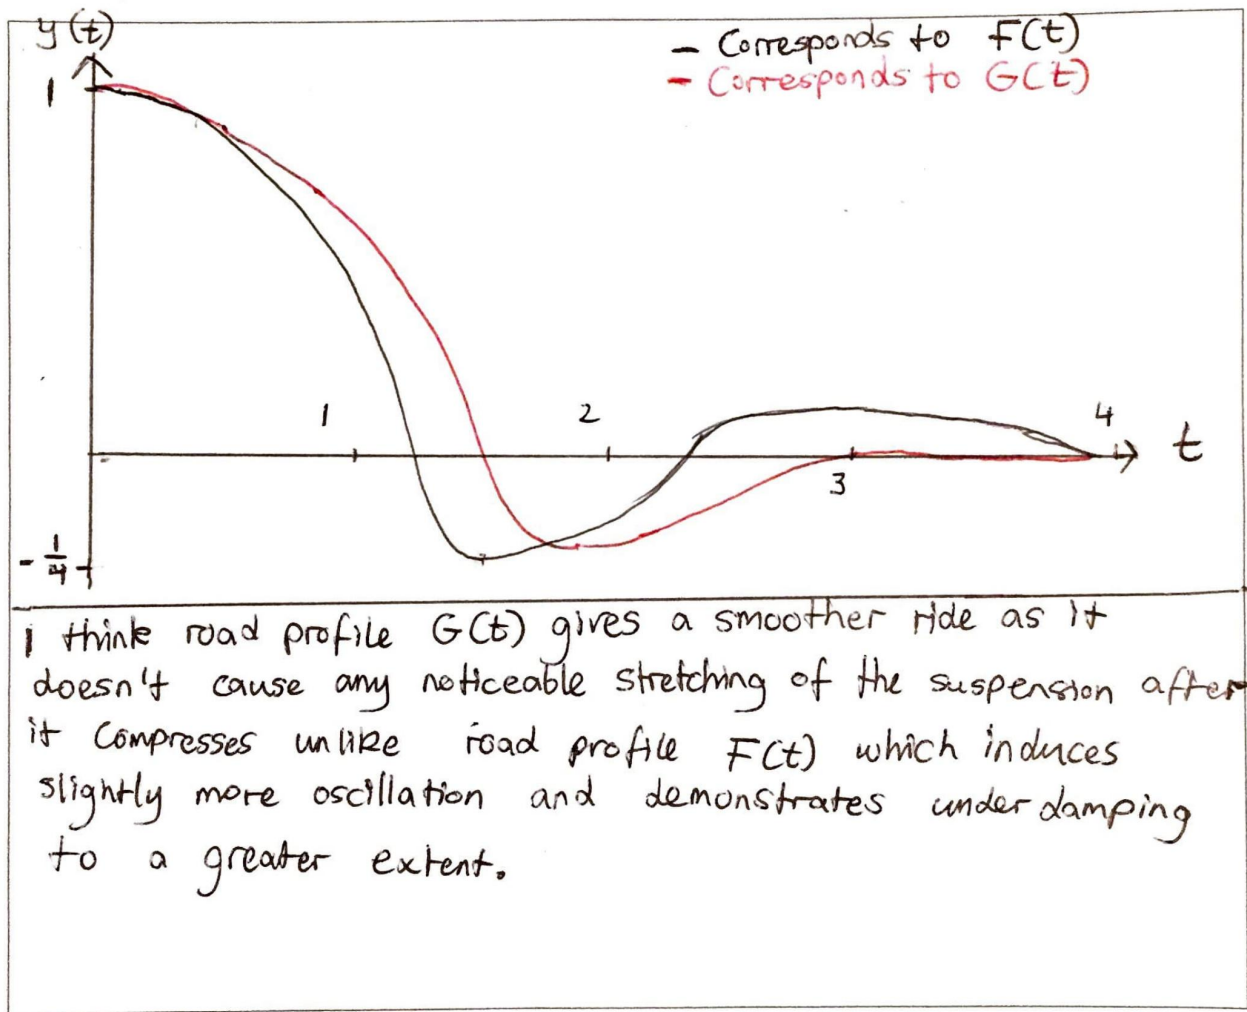 y(t)
- Corresponds to F(t)
- Corresponds to G(t)
1
1
2
4
t
3
- 1/4
I think road profile G(t) gives a smoother ride as it
doesn't cause any noticeable stretching of the suspension after
it compresses unlike road profile F(t) which induces
slightly more oscillation and demonstrates underdamping
to a greater extent.